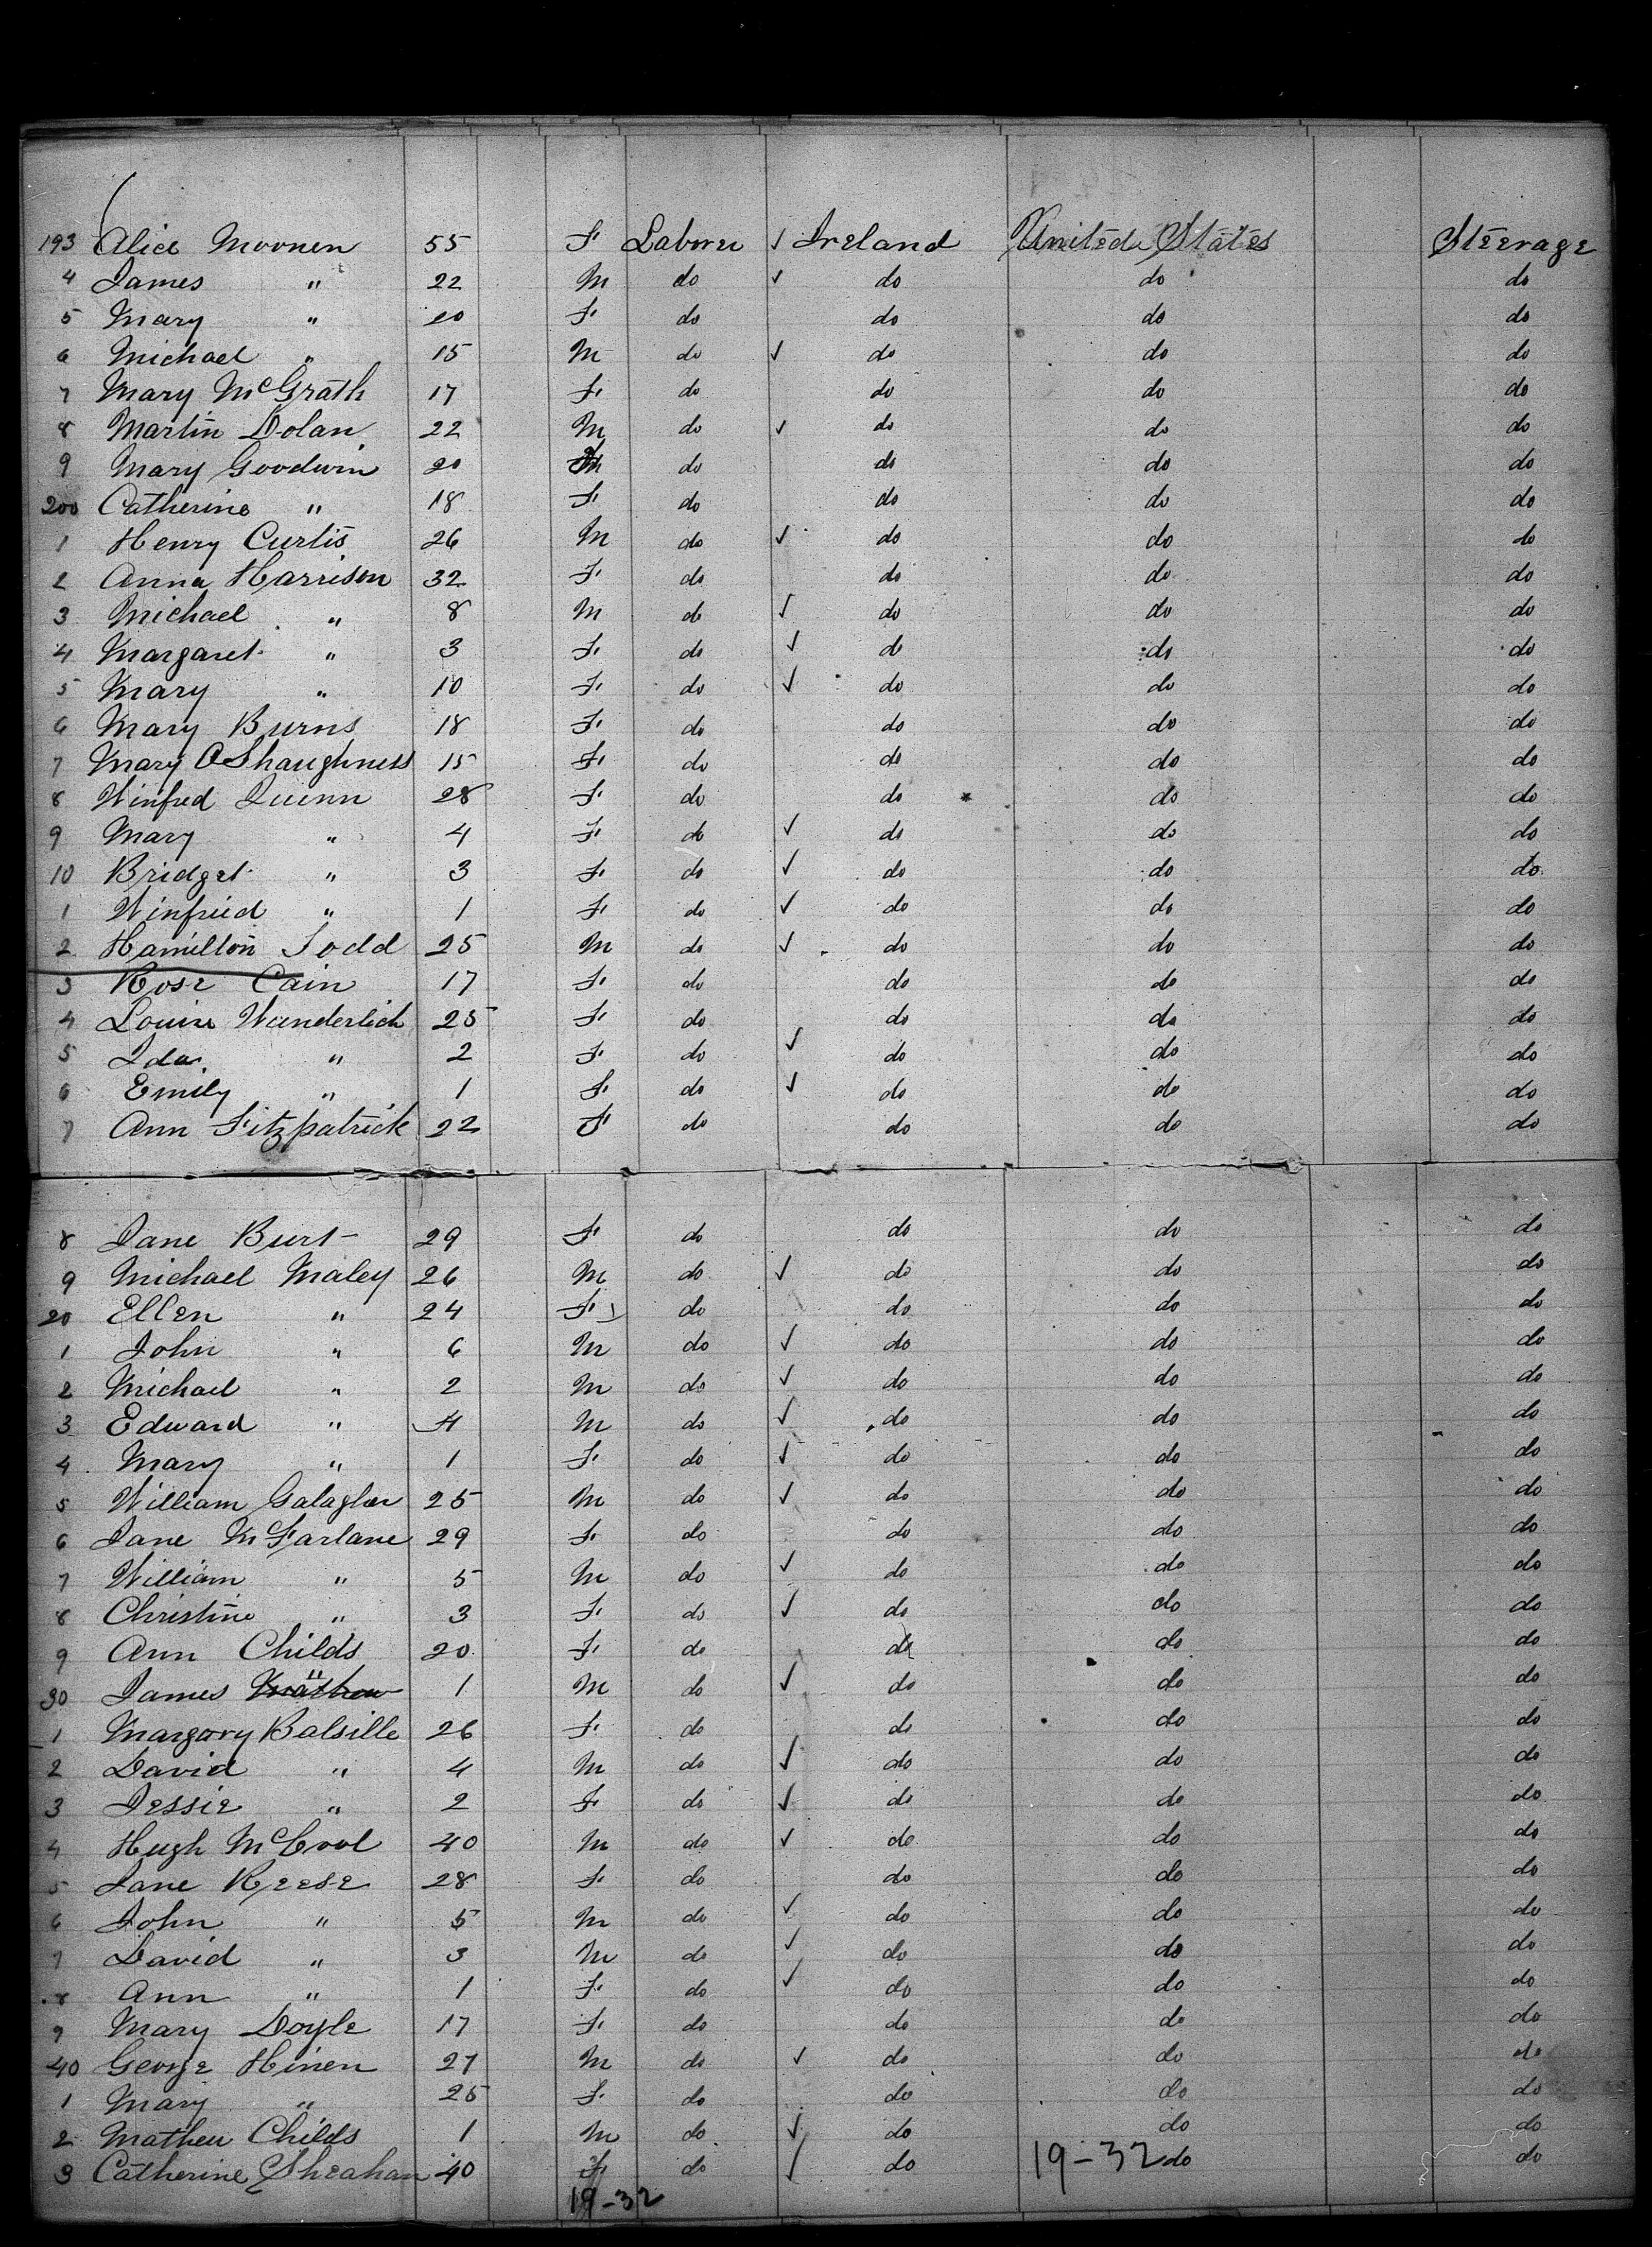 193 Alice Moonen 55 F Laborer ✓ Ireland United States Steerage
4 James " 22 M do ✓ do do do
5 Mary " 20 F do do do do
6 Michael " 15 M do ✓ do do do
7 Mary McGrath 17 F do do do do
8 Martin Dolan 22 M do ✓ do do do
9 Mary Goodwin 20 F do do do do
200 Catherine " 18 F do do do do
1 Henry Curtis 26 M do ✓ do do do
2 Anna Harrison 32 F do do do do
3 Michael " 8 M do ✓ do do do
4 Margaret " 3 F do ✓ do do do
5 Mary " 10 F do ✓ do do do
6 Mary Burns 18 F do do do do
7 Mary OShaughness 15 F do do do do
8 Winfred Quinn 28 F do do do do
9 Mary " 4 F do ✓ do do do
10 Bridget " 3 F do ✓ do do do
1 Winfried " 1 F do ✓ do do do
2 Hamilton Todd 25 M do ✓ do do do
3 Rose Cain 17 F do do do do
4 Louise Wanderlich 25 F do do do do
5 Ida " 2 F do ✓ do do do
6 Emily " 1 F do ✓ do do do
7 Ann Fitzpatrick 22 F do do do do
8 Jane Burt 29 F do do do do
9 Michael Maley 26 M do ✓ do do do
20 Ellen " 24 F do do do do
1 John " 6 M do ✓ do do do
2 Michael " 2 M do ✓ do do do
3 Edward " 4 M do ✓ do do do
4 Mary " 1 F do ✓ do do do
5 William Galagher 25 M do ✓ do do do
6 Jane McFarlane 29 F do do do do
7 William " 5 M do ✓ do do do
8 Christine " 3 F do ✓ do do do
9 Ann Childs 20 F do do do do
30 James " Mathew 1 M do ✓ do do do
1 Margory Balsille 26 F do do do do
2 David " 4 M do ✓ do do do
3 Jessie " 2 F do ✓ do do do
4 Hugh McCool 40 M do ✓ do do do
5 Jane Reese 28 F do do do do
6 John " 5 M do ✓ do do do
7 David " 3 M do ✓ do do do
8 Ann " 1 F do ✓ do do do
9 Mary Doyle 17 F do do do do
40 George Hinen 27 M do ✓ do do do
1 Mary " 25 F do do do do
2 Matheu Childs 1 M do ✓ do do do
3 Catherine Sheahan 40 F do ✓ do 19-32 do do
19-32